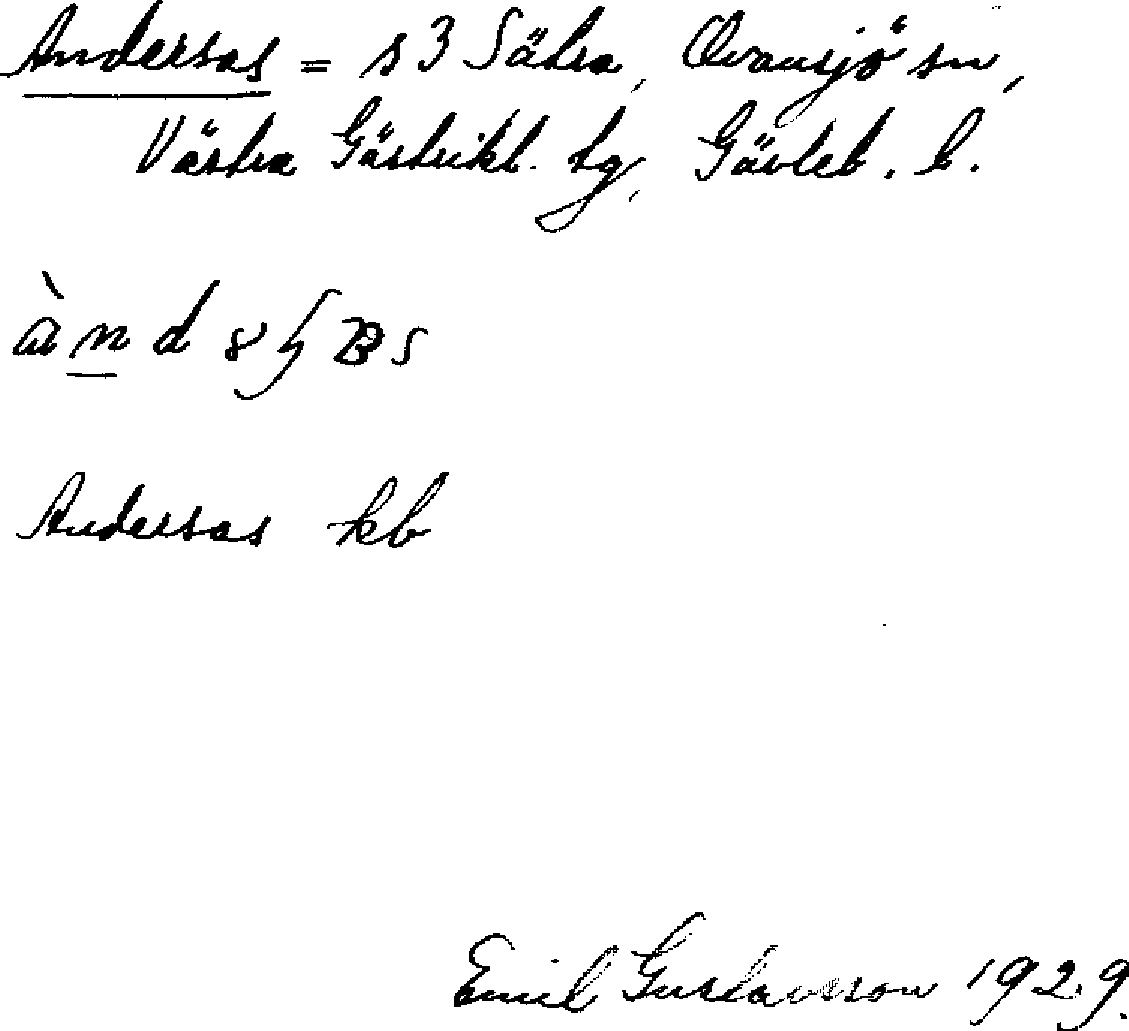 Andersas = s 3 Sätra, Ovansjö sn,
Västra Gästrikl. tg, Gävleb. l.
Andersas kb
Emil Gustavsson 1929.